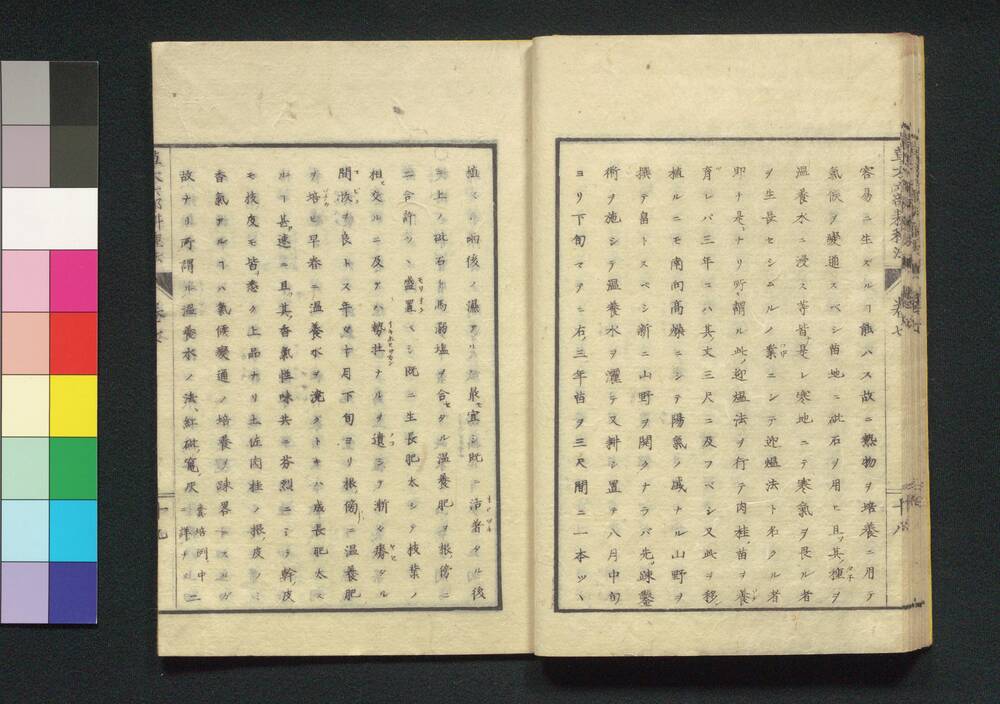 容易ニ生ズルヿ能ハス故ニ熱物ヲ培養ニ用テ
氣候ヲ變通スベシ苗地ニ砒石ヲ用ヒ且其種ヲ
温養水ニ浸ス等皆是レ寒地ニテ寒氣ヲ畏ル者
ヲ生長セシムルノ業ニシテ迎熅法ト名クル者
即チ是ナリ所謂ル此迎熅法ヲ行テ肉桂苗ヲ養
育レバ三年ニハ其丈三尺ニ及フベシ又此ヲ移
植ルニモ南向高燥ニシテ陽氣ノ盛ナル山野ヲ
撰テ畠トスベシ新ニ山野ヲ開クナラバ先疎鑿
術ヲ施シテ温養水ヲ灌テ又耕シ置テ八月中旬
ヨリ下旬マテニ右三年苗ヲ三尺間ニ一本ツヽ
植ベシ雨後ノ濕アル最宜シ既ニ活着タル後
上ノ砒石ト馬溺塩ヲ合セタル温養肥ヲ根傍ニ
二合許ツヽ盛置ベシ既ニ生長肥太シテ枝葉ノ
相交ルニ及テハ勢壮ナルヲ遺シテ漸々瘠タル
間拔ヲ良トス年々十月下旬ヨリ根傍ニ温養肥
ヲ培ヒ早春ニ温養水ヲ澆クトキハ成長肥太ス
ルヿ甚速ニ且其香氣性味共ニ芬烈ニシテ幹皮
モ枝皮モ皆悉ク上品ナリ土佐肉桂ノ根皮ノミ
香氣アルヿハ氣候變通ノ培養ヲ疎畧ニスルガ
故ナリ所謂ル温養水ノ法紅砒竃灰
養培例中ニ詳ナリ
巻七
十八
十九